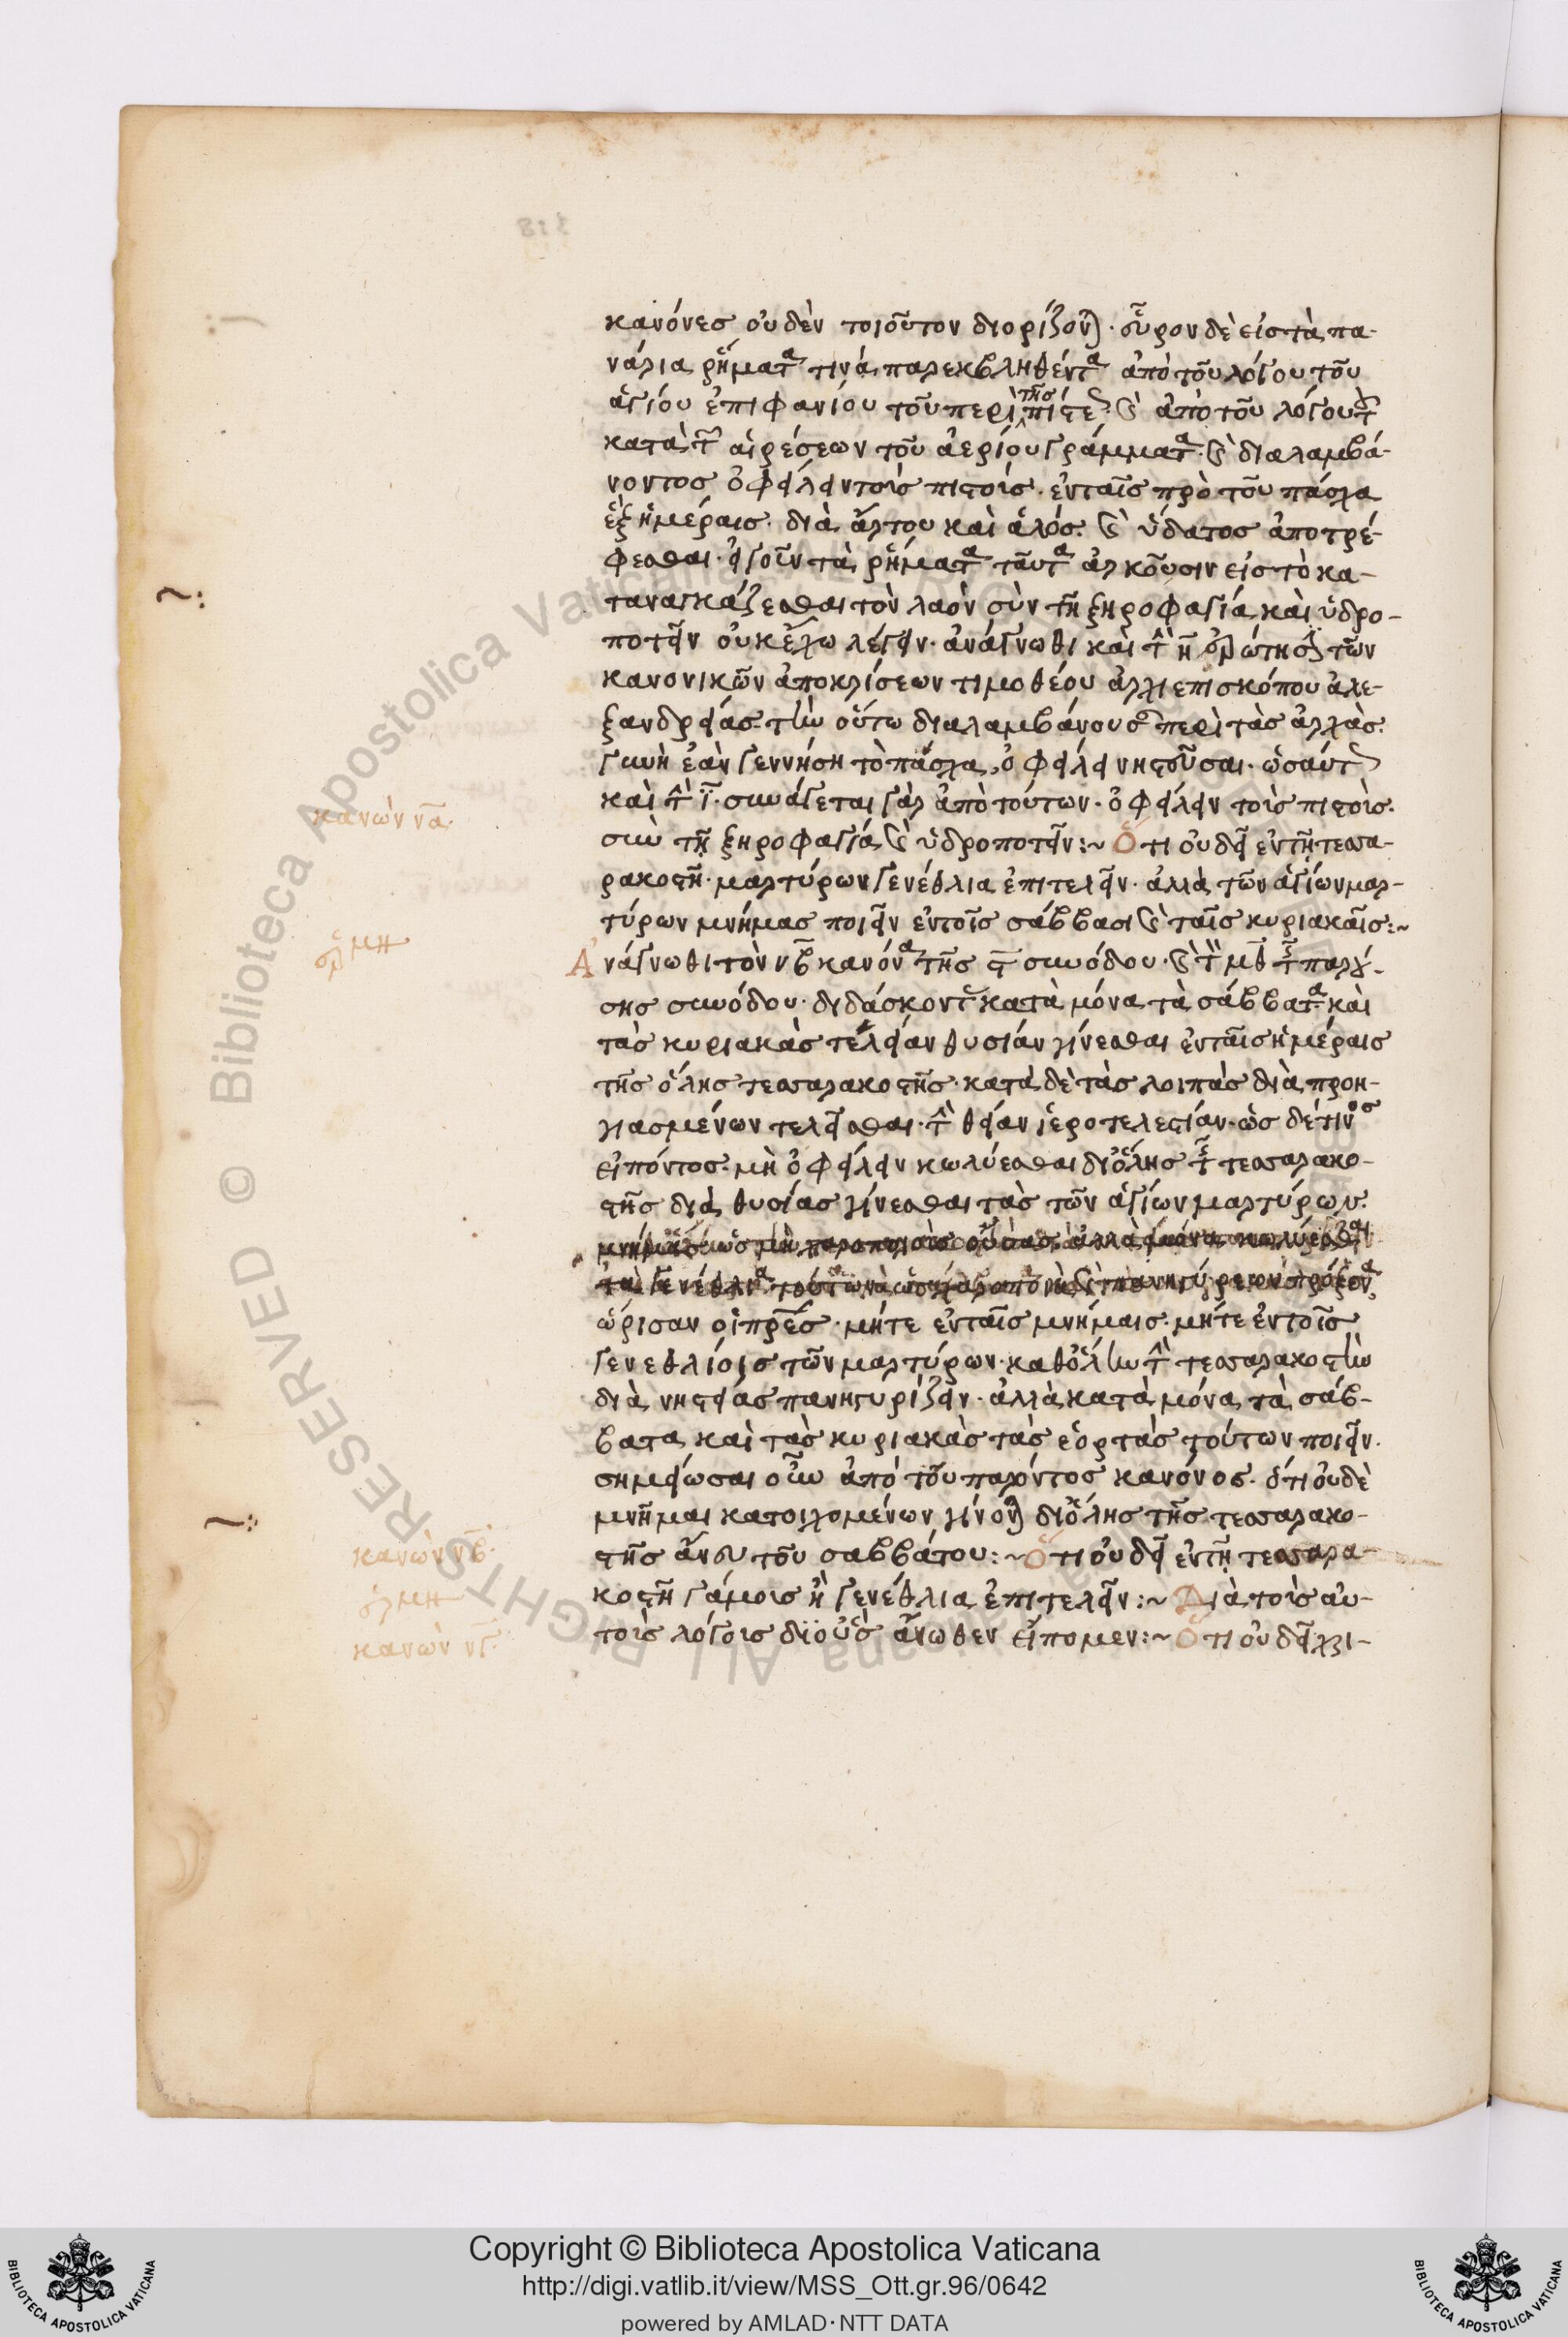 κανόνες οὐδὲν τοιοῦτον διορίζον). εὗρον δὲ εἰς τὰ πα-
νάρια ῥήματα τινὰ παρεκβληθέντα ἀπὸ τοῦ λόγου τοῦ
ἁγίου ἐπιφανίου τοῦ περὶ τῆς πίστε καὶ ἀπὸ τοῦ λόγου τ
κατὰ τ αἱρέσεων τοῦ ἀερίου γράμματα. καὶ διαλαμβά-
νοντος ὀφείλειν τοῖς πιστοῖς. ἐν ταῖς πρὸ τοῦ πάσχα
ἓξ ἡμέραις. διὰ ἄρτου καὶ ἁλὸς. καὶ ὕδατος ἀποτρέ-
φεσθαι. εἰ γοῦν τὰ ῥήματα ταῦτα ἀρκοῦσιν εἰς τὸ κα-
ταναγκάζεσθαι τὸν λαὸν σὺν τῆ ξηροφαγία καὶ ὑδρο-
ποτεῖν οὐκ ἔχω λέγειν. ἀνάγνωθι καὶ τ η ἐρώτησ τῶν
κανονικῶν ἀποκρίσεων τιμοθέου ἀρχιεπισκόπου ἀλε-
ξανδρείας. τὴν οὕτω διαλαμβάνουσ περὶ τὰς ἀρχὰς.
γυνὴ ἐὰν γεννήση τὸ πάσχα, ὀφείλει νηστεῦσαι. ὡσαύτ
καὶ τ ι. συνάγεται γὰρ ἀπὸ τούτων. ὀφείλειν τοῖς πιστοῖς.
σὺν τῆ ξηροφαγία καὶ ὑδροποτεῖν:~ Ὅτι οὐ δεῖ ἐν τῆ τεσσα-
ρακοστῆ. μαρτύρων γενέθλια ἐπιτελεῖν. ἀλλὰ τῶν ἁγίων μαρ-
τύρων μνήμας ποιεῖν ἐν τοῖς σάββασι καὶ ταῖς κυριακαῖς:~
Ἀνάγνωθι τὸν νβ κανόνα τῆς ϛ συνόδου. καὶ τ μθ τ παρού-
σης συνόδου. διδάσκοντ κατὰ μόνα τὰ σάββατα καὶ
τὰς κυριακὰς τελείαν θυσίαν γίνεσθαι ἐν ταῖς ἡμέραις
τῆς ὅλης τεσσαρακοστῆς. κατὰ δὲ τὰς λοιπὰς διὰ προη-
γιασμένων τελεῖσθαι. τ θείαν ἱεροτελεστίαν. ὡς δέ τινος
εἰπόντος. μὴ ὀφείλειν κωλύεσθαι δι᾽ ὅλης τ τεσσαρακο-
στῆς διὰ θυσίας γίνεσθαι τὰς τῶν ἁγίων μαρτύρων.
μνήμας ὡς μὴ χαροποιοὺς οὔσας. ἀλλὰ μόνα κωλύεσθαι
τὰ γενέθλια τούτων ὡς χαροποιὰ καὶ πανηγύρεων πρόξενα
ὥρισαν οἱ πρες. μήτε ἐν ταῖς μνήμαις. μήτε ἐν τοῖς
γενεθλίοις τῶν μαρτύρων. καθ᾽ ὅλην τ τεσσαρακοστὴν
διὰ νηστείας πανηγυρίζειν. ἀλλὰ κατὰ μόνα τὰ σάβ-
βατα καὶ τὰς κυριακὰς τὰς ἑορτὰς τούτων ποιεῖν.
σημείωσαι οὖν ἀπὸ τοῦ παρόντος κανόνος. ὅτι οὐδὲ
μνῆμαι κατοιχομένων γίνον) δι᾽ ὅλης τῆς τεσσαρακο-
στῆς ἄνευ τοῦ σαββάτου:~ Ὅτι οὐ δεῖ ἐν τῆ τεσσαρα-
κοστῆ γάμοις ἢ γενέθλια ἐπιτελεῖν:~ Διὰ τοὺς αὐ-
τοὺς λόγους δι᾽ οὓς ἄνωθεν εἴπομεν:~ Ὅτι οὐ δεῖ χρι-
κανὼν να.
ἑρμη
κανὼν νβ.
ἑρμη
κανὼν νγ.
Copyright © Biblioteca Apostolica Vaticana
http://digi.vatlib.it/view/MSS_Ott.gr.96/0642
powered by AMLAD·NTT DATA
BIBLIOTECA APOSTOLICA VATICANA
BIBLIOTECA APOSTOLICA VATICANA